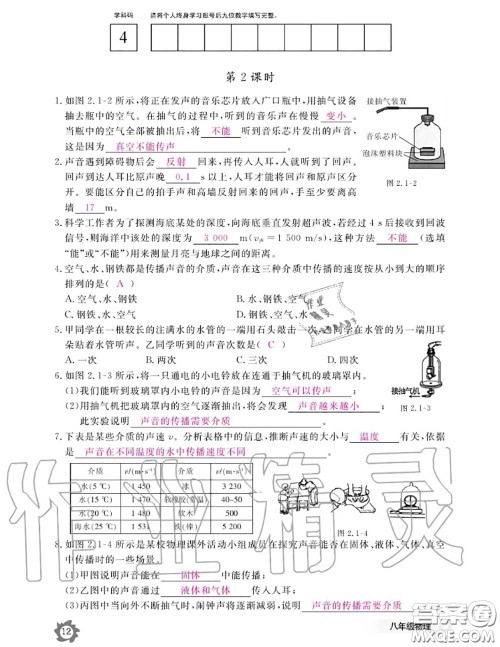 学科码 请将个人终身学习账号后九位数字填写完整。
4
第 2 课时
1. 如图 2.1-2 所示,将正在发声的音乐芯片放入广口瓶中,用抽气设备
抽去瓶中的空气。在抽气的过程中,听到的声音慢慢 变小 。
当瓶中的空气全部被抽出后,将 不能 听到音乐芯片发出的声音,
这是因为 真空不能传声 。
接抽气装置
音乐芯片
泡沫塑料块
图 2.1-2
2. 声音遇到障碍物后会 反射 回来,再传人人耳,人就听到了回声。
回声到达人耳比原声晚 0.1 s以上,人耳才能将回声和原声区分
开。要能区分自己的拍手声和高墙反射回来的回声,手至少要离高
墙 17 m。
3. 科学工作者为了探测海底某处的深度,向海底垂直发射超声波,若经过 4 s后接收到回波
信号,则海洋中该处的深度为 3 000 m(v水=1 500 m/s),这种方法 不能 (选填
“能”或“不能”)用来测量月亮与地球之间的距离。
4. 空气、水、钢铁都是传播声音的介质,声音在这三种介质中传播的速度按从小到大的顺序
排列的是( A )
A. 空气、水、钢铁 B. 水、钢铁、空气
C. 钢铁、水、空气 D. 钢铁、空气、水
5. 甲同学在一根较长的注满水的水管的一端用石头敲击一次,乙同学在水管的另一端用耳
朵贴着水管听声。乙同学听到声音次数是( C )
A. 一次 B. 两次 C. 三次 D. 四次
6. 如图 2.1-3 所示,将一只通电的小电铃放在连通于抽气机的玻璃罩内。
(1)我们能听到玻璃罩内小电铃的声音是因为 空气可以传声 ;
(2)用抽气机把玻璃罩内的空气逐渐抽出,将会发现 声音越来越小 ;
此实验说明 声音的传播需要介质 。
接抽气机
图 2.1-3
7. 下表是某些介质的声速 v。分析表格中的信息,推断声速的大小与 温度 有关,依据
是 声音在不同温度的水中传播速度不同 。
介质 v/(m·s⁻¹) 介质 v/(m·s⁻¹)
水(5 ℃) 1 450 冰 3 230
水(15 ℃) 1 470 软橡胶(常温) 40~50
水(20 ℃) 1 480 软木 500
海水(25 ℃) 1 531 铁(棒) 5 200
图 2.1-4
8. 如图 2.1-4 所示是某校物理课外活动小组成员在探究声音能否在固体、液体、气体、真空
中传播时的一些场景。
(1)甲图说明声音能在 固体 中能传播;
(2)乙图中的声音通过 液体和气体 传人人耳;
(3)丙图中当向外不断抽气时,闹钟声将逐渐减弱,说明 声音的传播需要介质
12
八年级物理
作业精灵
答案圈